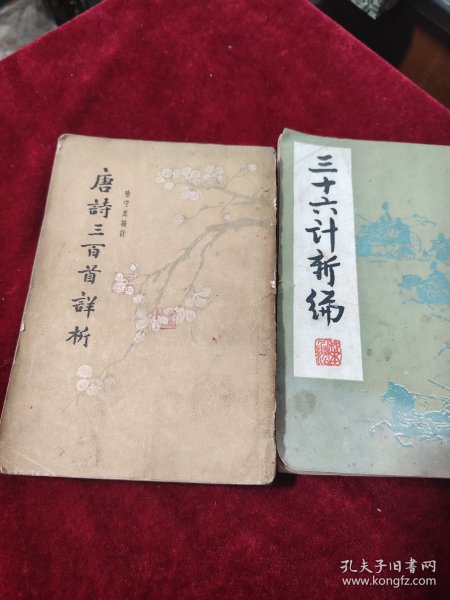 唐詩三百首詳析
喻守真編註
三十六计新编
孔夫子旧书网
www.kongfz.com